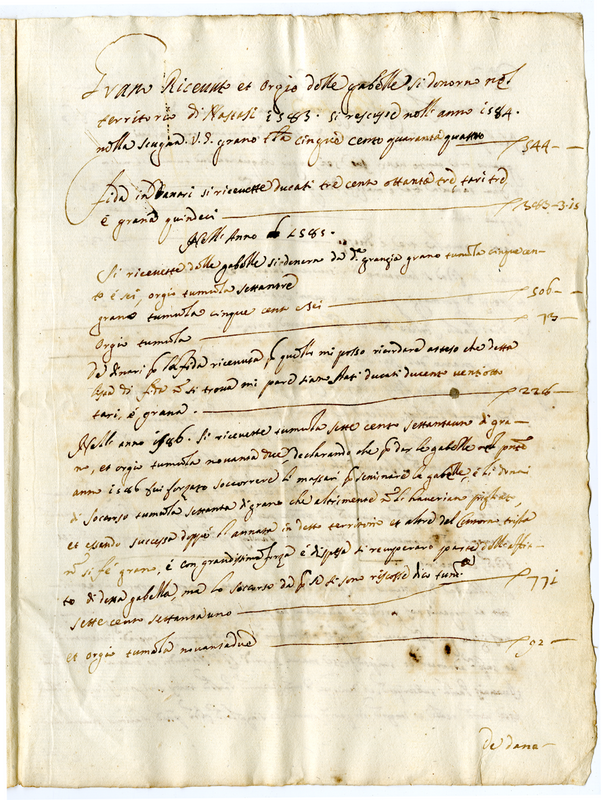 Grano Riceuuto et orgio delle gabelle si denorno nel
territorio di Nastasi 1583. si rescosse nell' anno 1584.
nella grano cinque cento quaranta quattro 544
fida in Danari si riceuette ducati tre cento ottanta tre, tari tre,
e grana quindeci 383-3-15
Nell' Anno 1585.
Si riceuette dalle gabelle grano tumula cinque cen-
to e sei, orgio tumula settantre
grano tumula cinque cento sei 506
Orgio tumula 73
De denari p la fida riceuuta, p quello mi posso ricordare atteso che detta
di fida si troua mi pare siano stati ducati ducento vent'otto
tari, e grana. 228
Nell' anno 1586. Si riceuette tumula sette cento settantauno di gra-
no, et orgio tumula nouanta due, declarando che p le gabelle
anno 1586 fui forzato soccorrere li massari p seminare le gabelle, e li denni
di soccorso tumula settanta di grano che altrimente li haueriano
et essendo successa doppò l'annata in detto territorio et altre del trista
si fè grano, è con grandissima forza è dispesa si recuperaro parte
to di detta gabella, ma lo soccorso si sono riscosse dico
sette cento settantauno 771
et orgio tumula nouantadue 92
de dana-